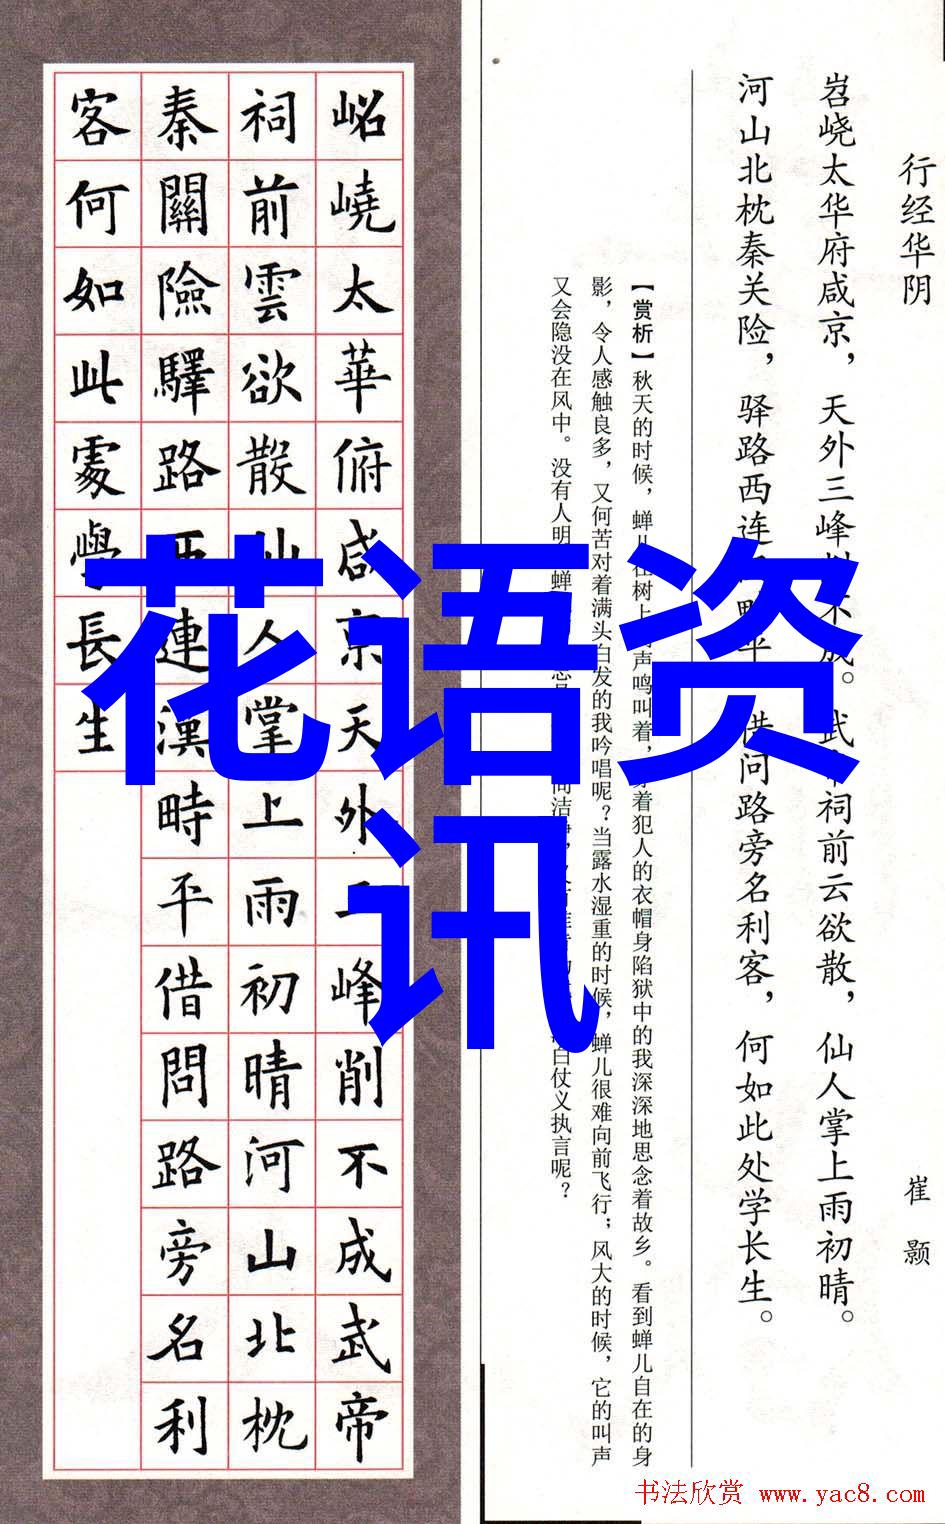 行经华阴
崔颢
岧峣太华府咸京，天外三峰不成。武祠前云欲散，仙人掌上雨初晴。
河山北枕秦关险，驿路西连畤平。借问路旁名利客，何如此处学长生。
【赏析】秋天的时候，蝉儿在树上声鸣叫着，着犯人的衣帽身陷狱中的我深深地思念着故乡。看到蝉儿自在的身
影，令人感触良多，又何苦对着满头白发的我吟唱呢？当露水湿重的时候，蝉儿很难向前飞行；风大的时候，它的叫声
又会隐没在风中。没有人明蝉洁白仗义执言呢？
岧嶢太華俯咸京天外三峰削不成武帝
祠前雲欲散仙人掌上雨初晴河山北枕
秦關險驛路西連漢畤平借問路旁名利
客何如此處學長生
花语资
讯
书法欣赏 www.yac8.com